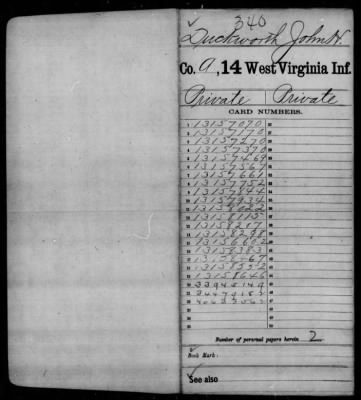 340
Duckworth John H.
Co. A, 14 West Virginia Inf.
Private Private
CARD NUMBERS.
1 13157070
2 13157170
3 13157270
4 13157370
5 13157469
6 13157567
7 13157661
8 13157752
9 13157844
10 13157934
11 13158022
12 13158115
13 13158207
14 13158298
15 13156602
16 13158383
17
18 13158552
19 13158646
20 33945149
21
22
Number of personal papers herein 2
Book Mark:
See also